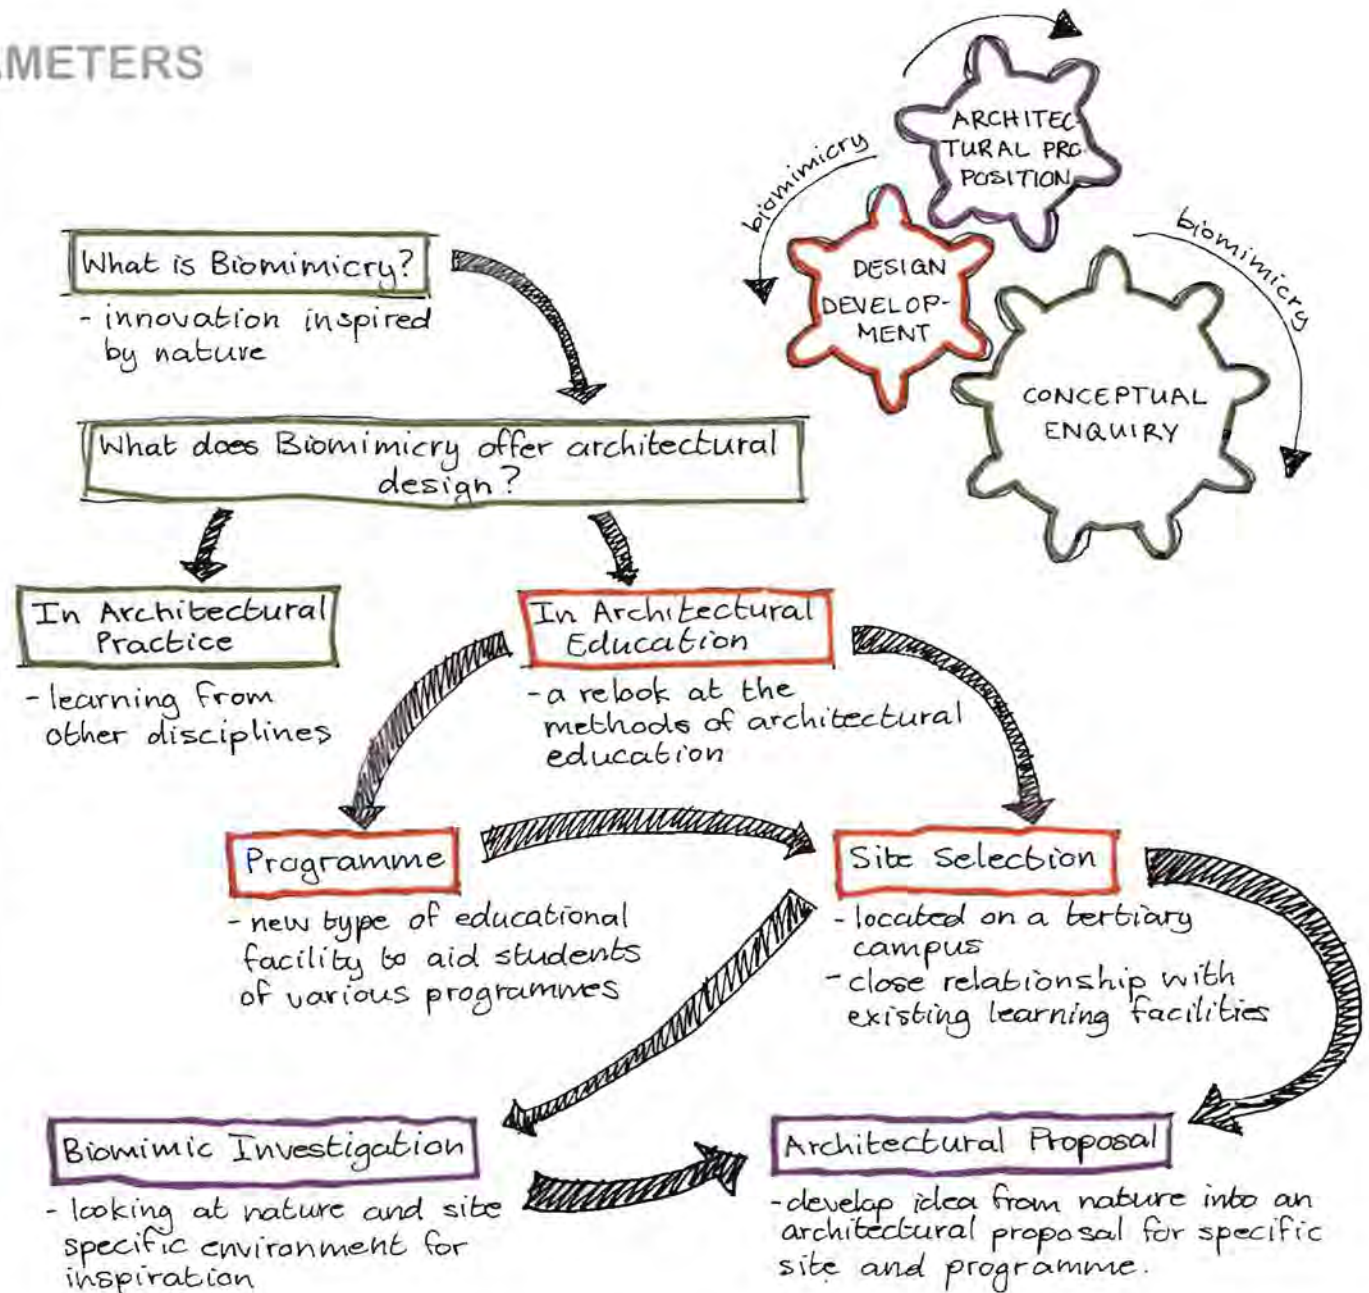 AMETERS
ARCHITEC-
TURAL PRO
POSITION
biomimicry
DESIGN
DEVELOP-
MENT
biomimicry
CONCEPTUAL
ENQUIRY
What is Biomimicry?
- innovation inspired
by nature
What does Biomimicry offer architectural
design?
In Architectural
Practice
- learning from
other disciplines
In Architectural
Education
- a relook at the
methods of architectural
education
Programme
- new type of educational
facility to aid students
of various programmes
Site Selection
- located on a tertiary
campus
- close relationship with
existing learning facilities
Biomimic Investigation
- looking at nature and site
specific environment for
inspiration
Architectural Proposal
- develop idea from nature into an
architectural proposal for specific
site and programme.